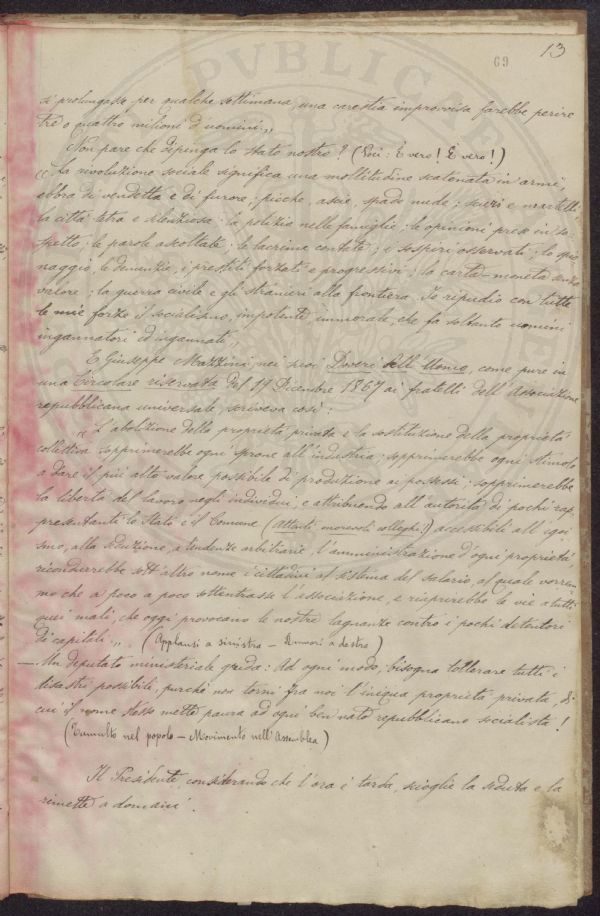 13
69
si prolungasse per qualche settimana, una carestia improvvisa farebbe perire
tre o quattro milioni d'uomini.„
Non pare che dipinga lo stato nostro? (Voci: È vero! È vero!)
„ La rivoluzione sociale significa una moltitudine scatenata in armi,
ebbra di vendetta e di furore: picche, ascie, spade nude; scuri e martelli;
la città tetra e silenziosa: la polizia nelle famiglie; le opinioni prese in so-
spetto, le parole ascoltate; le lacrime contate; i sospiri osservati; lo spio-
naggio, le denunzie, i prestiti forzati e progressivi; la carta-moneta senza
valore; la guerra civile e gli stranieri alla frontiera. Io ripudio con tutte
le mie forze il socialismo, impotente, immorale, che fa soltanto uomini
ingannatori ed ingannati.„
E Giuseppe Mazzini, nei suoi Doveri dell'Uomo, come pure in
una Circolare riservata del 17 Dicembre 1867 ai fratelli dell'Associazione
repubblicana universale, scriveva così:
„ L'abolizione della proprietà privata e la sostituzione della proprietà
collettiva sopprimerebbe ogni sprone all'industria; sopprimerebbe ogni stimolo
a dare il più alto valore possibile di produzione ai possessi; sopprimerebbe
la libertà del lavoro negli individui, e attribuendo all'autorità di pochi rap-
presentanti lo Stato e il Comune (Attenti onorevoli colleghi!) accessibili all'egoi-
smo, alla seduzione, a tendenze arbitrarie, l'amministrazione d'ogni proprietà
ricondurrebbe sott'altro nome i cittadini al sistema del salario, al quale vorrem-
mo che a poco a poco sottentrasse l'associazione, e riaprirebbe le vie a tutti
quei mali, che oggi provocano le nostre lagnanze contro i pochi detentori
di capitali.„ (Applausi a sinistra – Rumori a destra)
– Un deputato ministeriale grida: Ad ogni modo, bisogna tollerare tutti i
disastri possibili, purché non torni fra noi l'iniqua proprietà privata, di
cui il nome stesso mette paura ad ogni ben nato repubblicano socialista!
(Tumulto nel popolo – Movimento nell'Assemblea)
Il Presidente, considerando che l'ora è tarda, scioglie la seduta e la
rimette a domani.